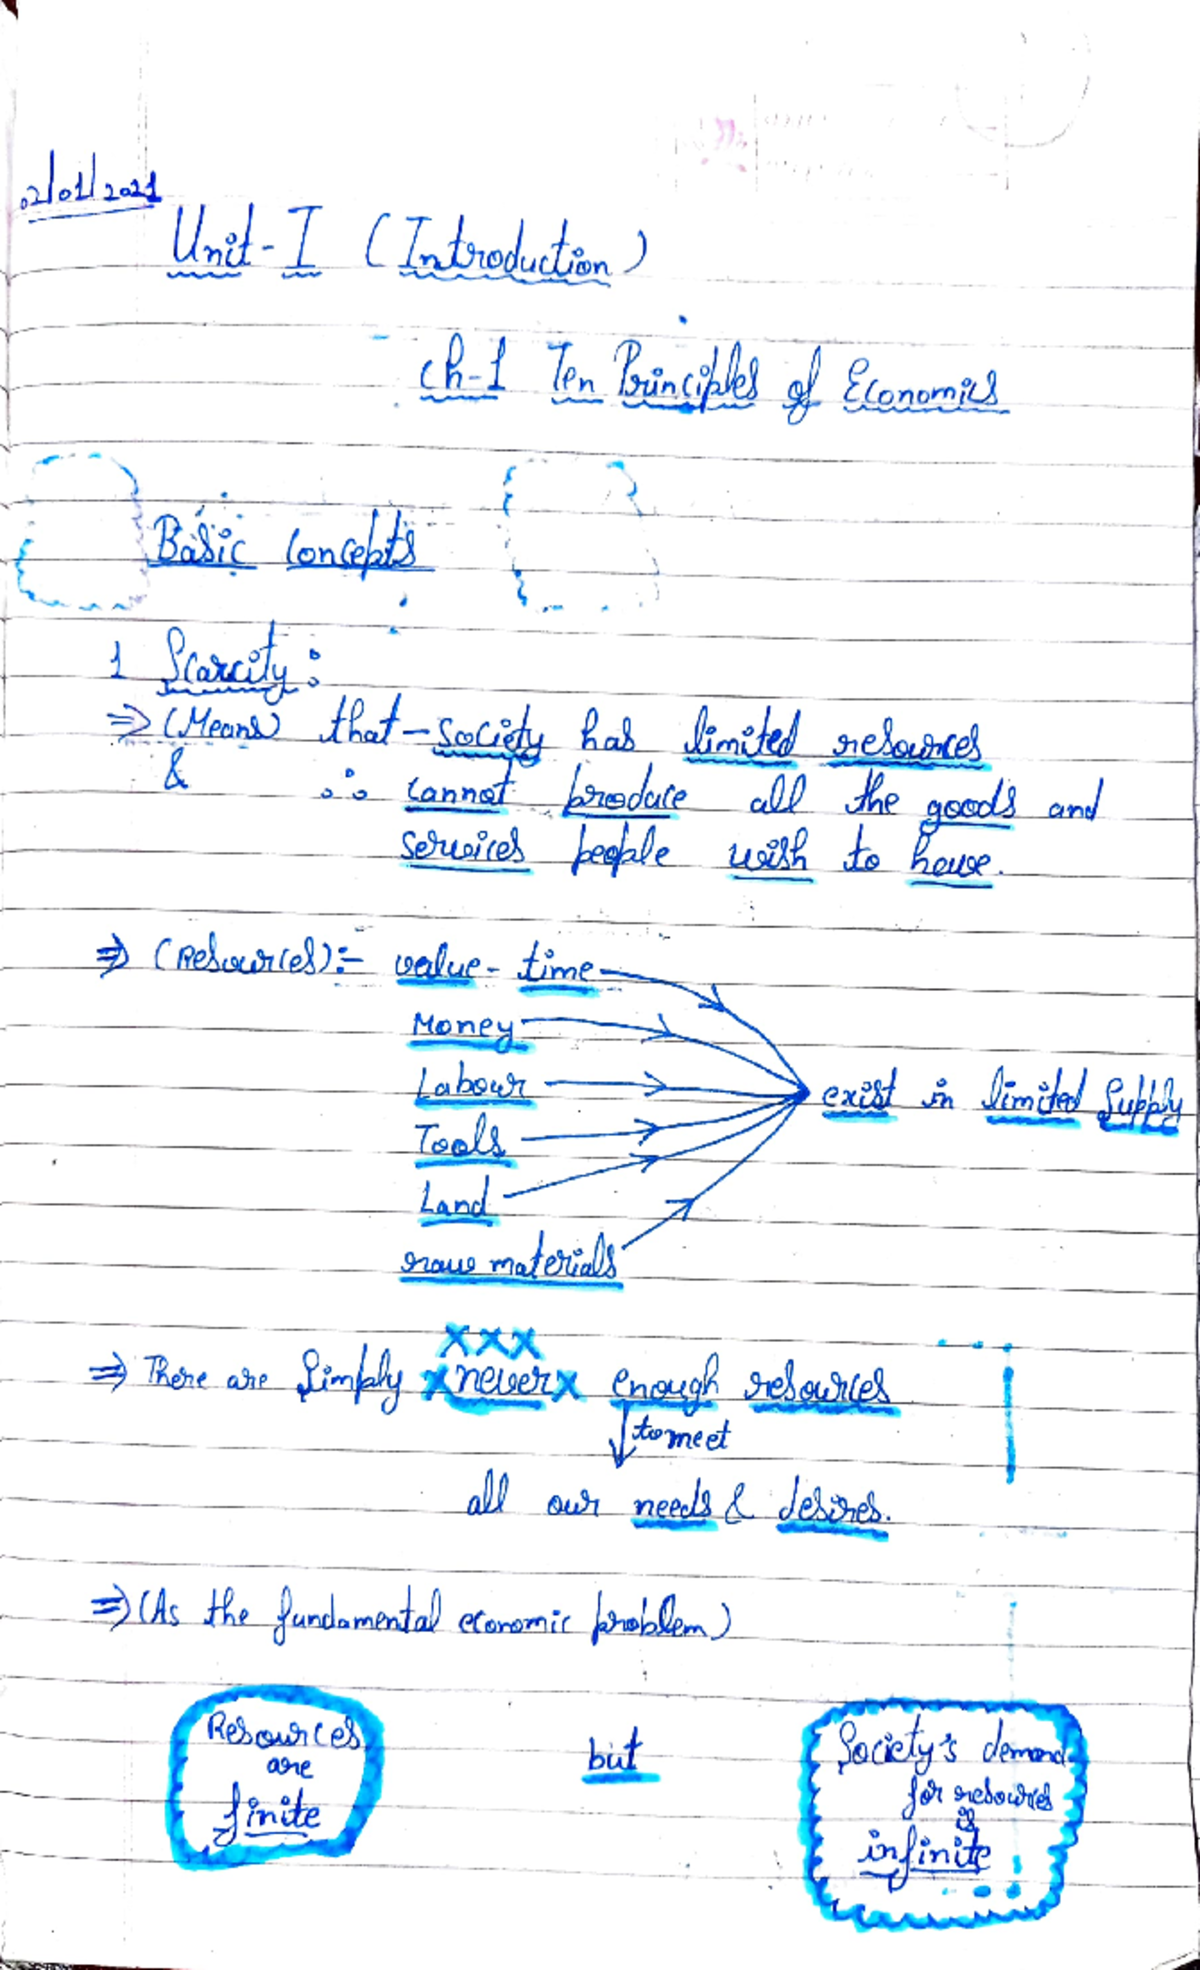 02/01/2021
Unit-I (Introduction)
Ch-1 Ten Principles of Economics
Basic Concepts
1 Scarcity:
⇒ (Means) that - society has limited resources
& ∴ cannot produce all the goods and
services people wish to have.
⇒ (Resources):- value - time
Money
Labour
exist in limited Supply
Tools
Land
raw materials
xxx
⇒ There are Simply x never x enough resources
↓ to meet
all our needs & desires.
⇒ (As the fundamental economic problem)
Resources
are
finite
but
Society's demand
for resources
is
infinite